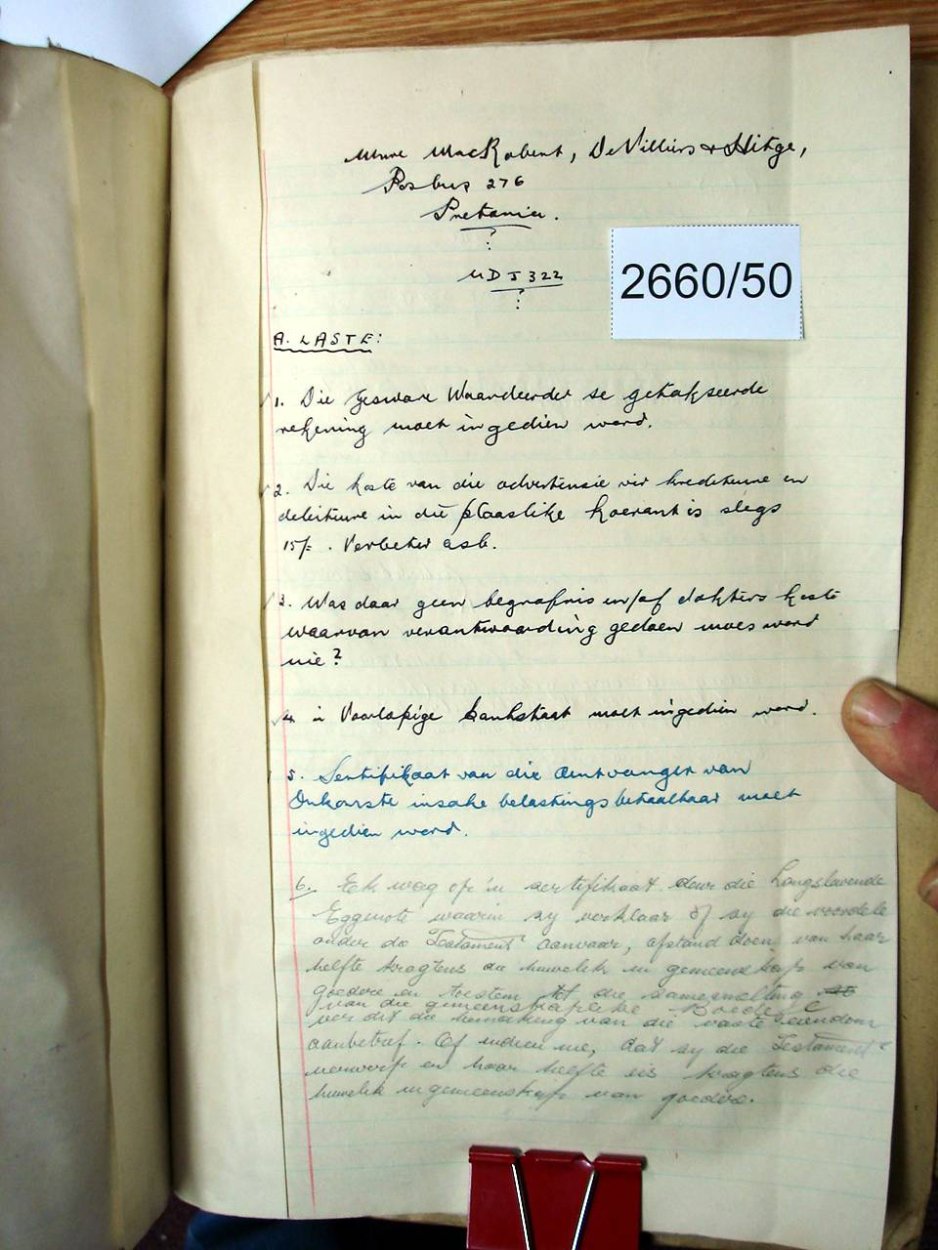 Mnre MacRobert, De Villiers & Hitge,
Posbus 276
Pretoria.
MDJ 322
2660/50
A. LASTE:
1. Die Gesware Waardeerder se getakseerde
rekening moet ingedien word.
2. Die koste van die advertensie vir krediteure en
debiteure in die plaaslike koerant is slegs
15/- . Verbeter asb.
3. Was daar geen begrafnis en/of dokters koste
waarvan verantwoording gedoen moes word
nie?
4. 'n Voorlopige bankstaat moet ingedien word.
5. Sertifikaat van die Ontvanger van
Inkomste insake belastings betaalbaar moet
ingedien word.
6. Ek wag op 'n sertifikaat deur die Langslewende
Eggenote waarin sy verklaar of sy die voordele
onder die Testament aanvaar, afstand doen van haar
helfte kragtens die huwelik in gemeenskap van
goedere en toestem tot die samesmelting
van die gemeenskaplike Boedel
ver dit die bemaking van die vaste eiendom
aanbetref. Of indien nie, dat sy die Testament
verwerp en haar helfte eis kragtens die
huwelik in gemeenskap van goedere.